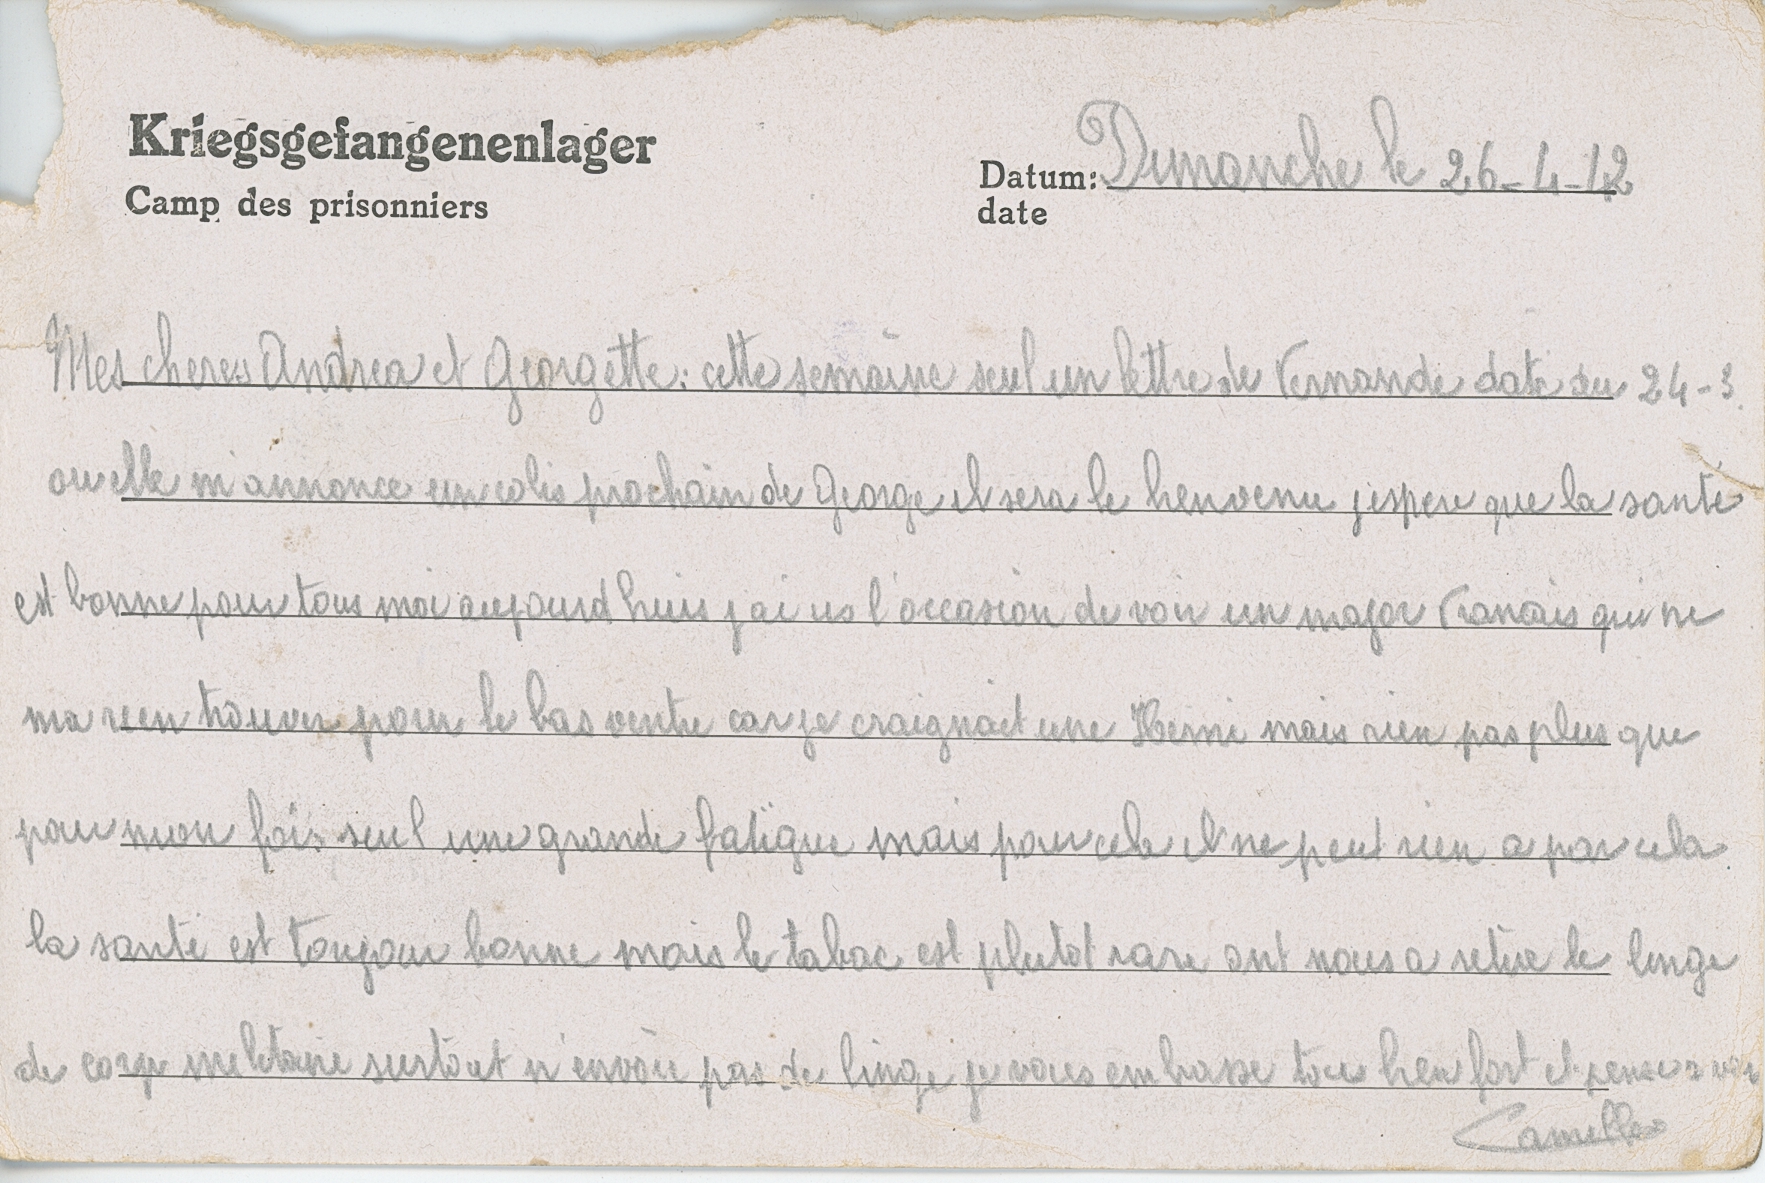 Kriegsgefangenenlager
Camp des prisonniers
Datum: Dimanche le 26-4-42
date
Mes cheres Andrea et Georgette: cette semaine seul un lettre de Fernande date du 24-3.
ou elle m'annonce un colis prochain de George il sera le bienvenu j'espere que la santé
est bonne pour tous moi aujourd huis j ai us l'occasion de voir un major Francais qui ne
ma rien trouver pour le bas ventre car je craignait une Herni mais rien pas plus que
pour mon foie seul une grande fatigue mais pour cela il ne peut rien a par cela
la santé est toujour bonne mais le tabac est plutot rare ont nous a retire le linge
de corp militaire surtout n'envoie pas de linge je vous embrasse tous bien fort et pense a
Camille